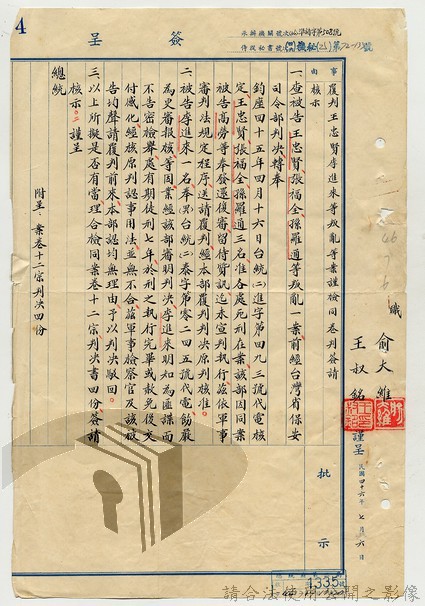 4
簽呈
事由
覆判王忠賢李進來等叛亂等案謹檢同卷判簽請
核示
一、查被告王忠賢張福全孫羅通等叛亂一案前經台灣省保安
司令部判決轉奉
鈞座四十五年四月十六日台統(二)進字第四九三號代電核
定王忠賢張福全孫羅通三名准各處死刑在案該部因同案
被告高勞等奉發還復審留侍質訊迄未宣判執行茲依軍事
審判法規定程序送請覆判經本部覆判決原判核准。
二、被告李進來一名奉(異)台統(二)進字第零二四五號代電飭嚴
為更審報核等因業經該部審明判決李進來明知為匪諜而
不告密檢舉處有期徒刑七年於刑之執行完畢或赦免後交
付感化經核原判認事用法並無不合茲軍事檢察官及該被
告均聲請覆判前來本部認均無理由予以判決駁回。
三、以上所擬是否有當理合檢同案卷十二宗判決書四份簽請
核示。謹呈
總統
附呈:案卷十二宗判決四份
職 俞大維
王叔銘 謹呈
民國四十六年七月六日
批示
1335
請合法使用公開之影像